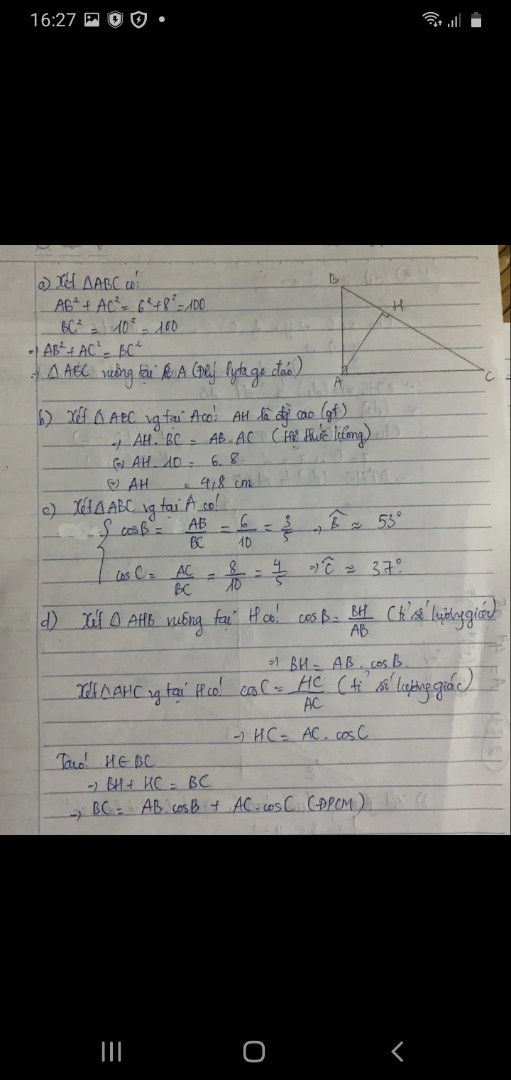 16:27
a) Xét △ABC có:
AB² + AC² = 6² + 8² = 100
BC² = 10² = 100
→ AB² + AC² = BC²
→ △ABC vuông tại A (Đlý Pytago đảo)
B
H
A
C
b) Xét △ABC vg tại A có: AH là đg cao (gt)
→ AH. BC = AB. AC (Hệ thức lượng)
⇔ AH. 10 = 6. 8
⇔ AH = 4,8 cm
c) Xét △ABC vg tại A có:
cosB = AB/BC = 6/10 = 3/5 → B̂ ≈ 53°
cosC = AC/BC = 8/10 = 4/5 ⇒ Ĉ ≈ 37°
d) Xét △AHB vuông tại H có: cosB = BH/AB (tỉ số lượng giác)
⇒ BH = AB. cosB.
Xét △AHC vg tại H có: cosC = HC/AC (tỉ số lượng giác)
→ HC = AC. cosC
Ta có: H ∈ BC
→ BH + HC = BC
→ BC = AB. cosB + AC. cosC (ĐPCM)